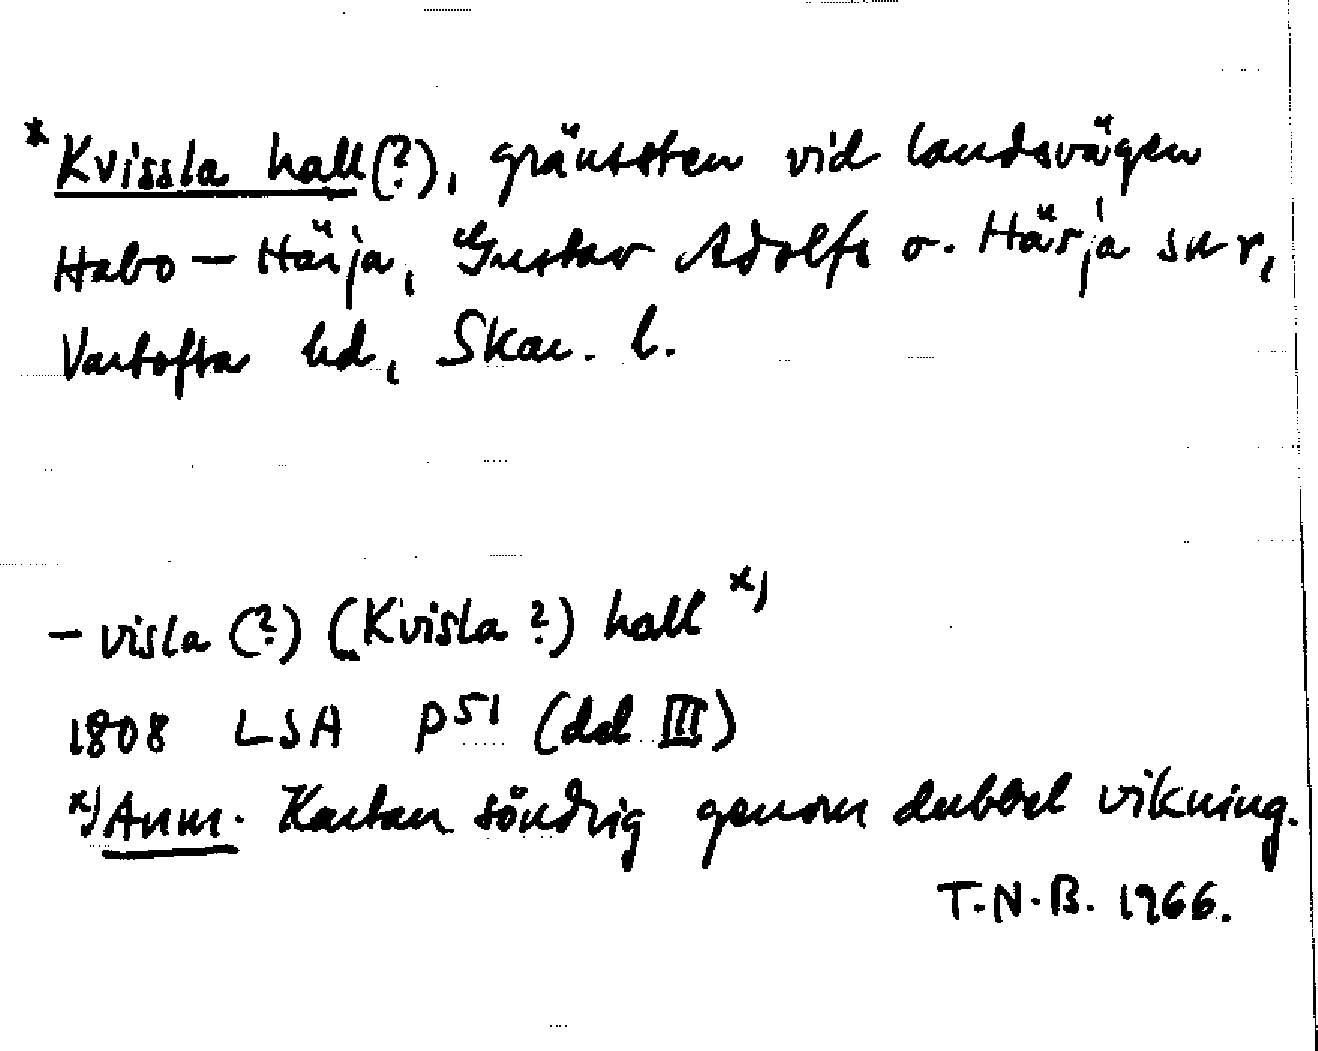 * Kvissla hall (?), gränssten vid landsvägen
Habo – Härja, Gustav Adolfs o. Härja snr,
Vartofta hd, Skar. l.
– visla (?) (Kvisla ?) hall x)
1808 LSA P51 (del III)
x) Anm. Kartan söndrig genom dubbel vikning.
T.N.B. 1966.